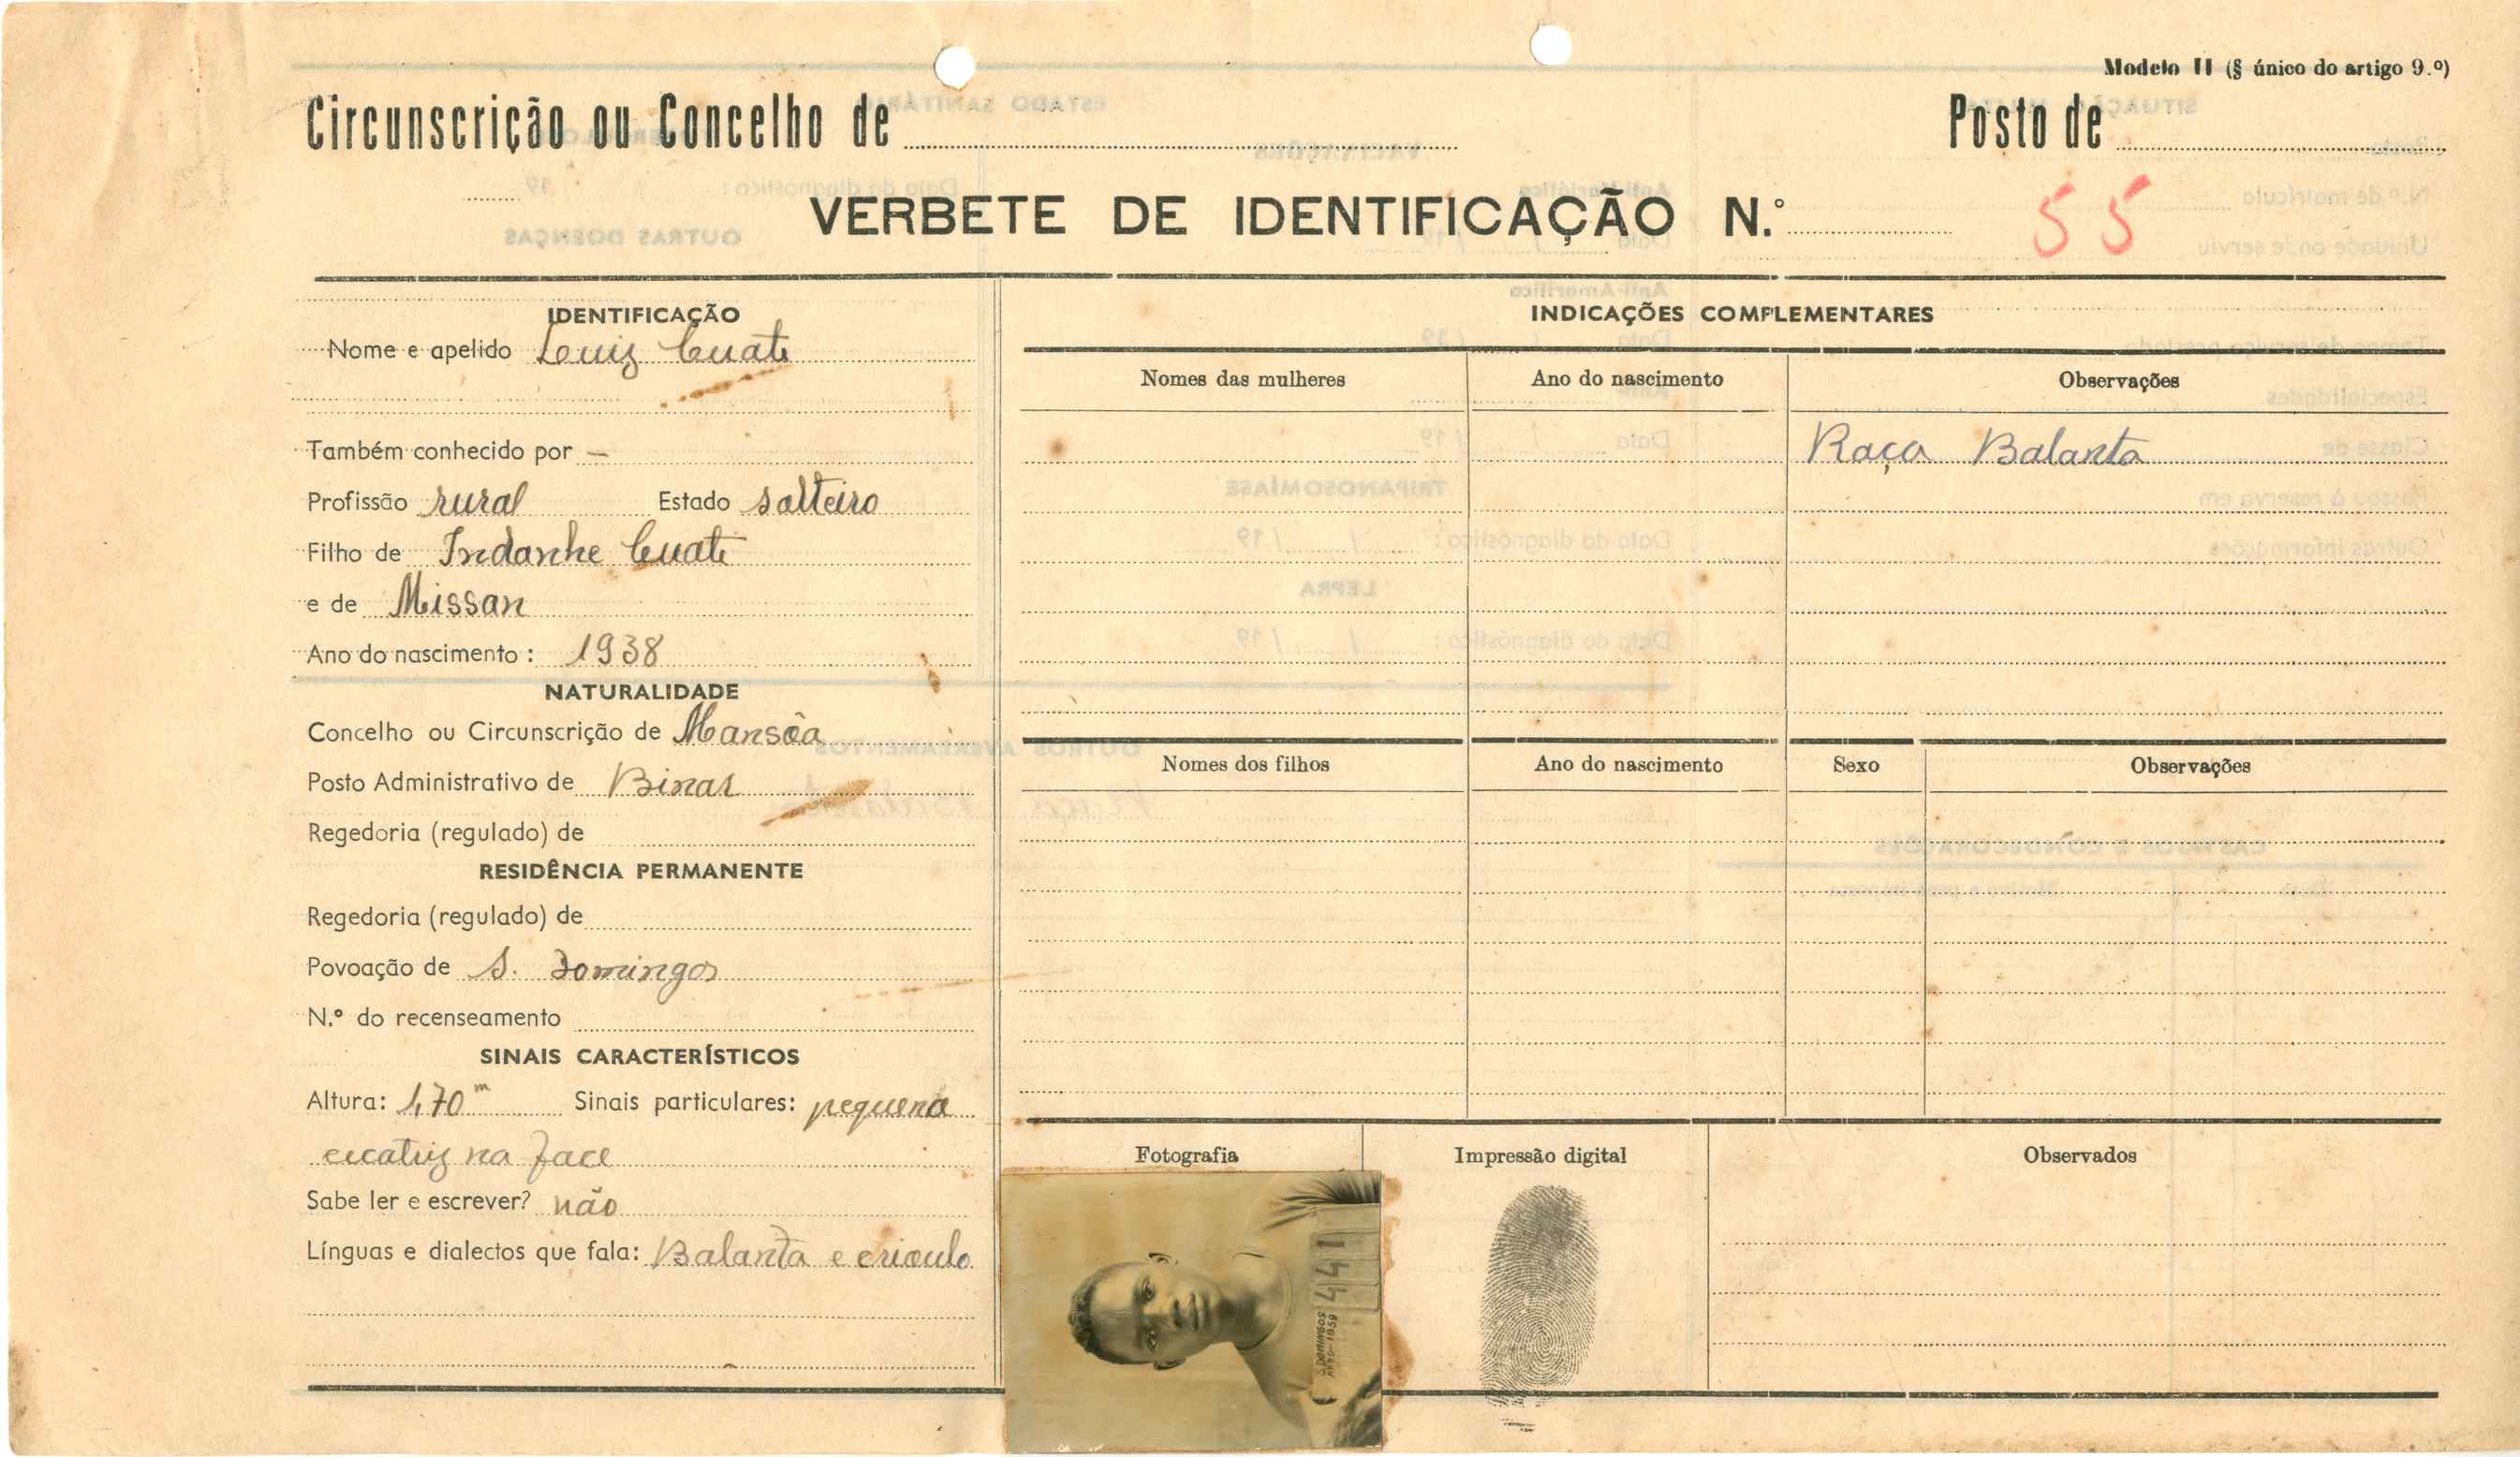 Modelo II (§ único do artigo 9.º)
Circunscrição ou Concelho de
Posto de
VERBETE DE IDENTIFICAÇÃO N.º 55
IDENTIFICAÇÃO
Nome e apelido Luiz Cuate
Também conhecido por —
Profissão rural Estado solteiro
Filho de Indanhe Cuate
e de Missan
Ano do nascimento: 1938
NATURALIDADE
Concelho ou Circunscrição de Mansôa
Posto Administrativo de Binar
Regedoria (regulado) de
RESIDÊNCIA PERMANENTE
Regedoria (regulado) de
Povoação de S. Domingos
N.º do recenseamento
SINAIS CARACTERÍSTICOS
Altura: 1,70 m Sinais particulares: pequena
cicatriz na face
Sabe ler e escrever? não
Línguas e dialectos que fala: Balanta e crioulo
INDICAÇÕES COMPLEMENTARES
Nomes das mulheres Ano do nascimento Observações
Raça Balanta
Nomes dos filhos Ano do nascimento Sexo Observações
Fotografia Impressão digital Observados
441
S. DOMINGOS
ANO-1959